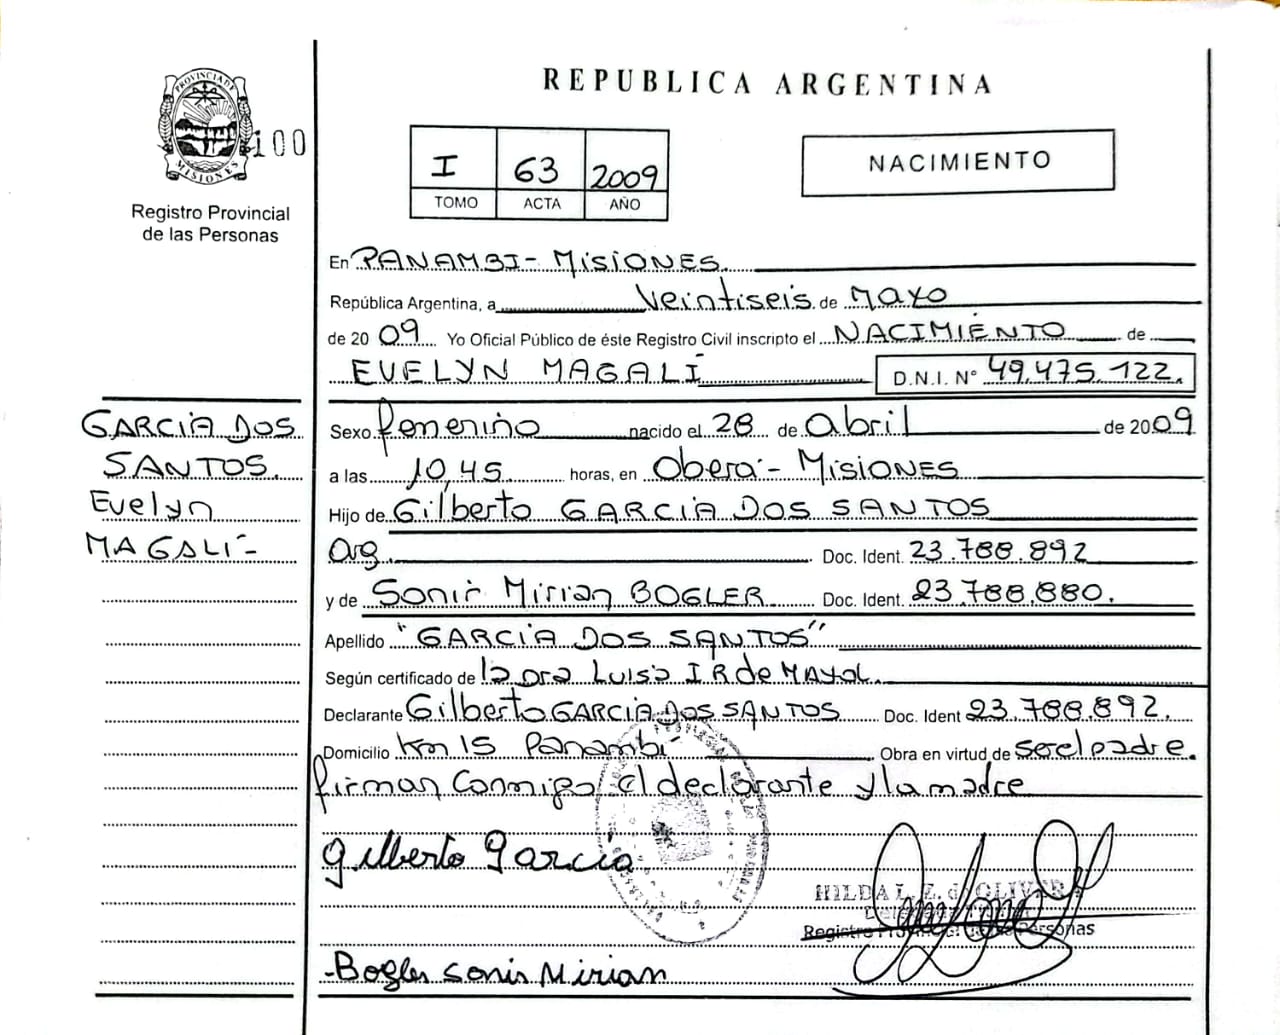 PROVINCIA DE
MISIONES
100
Registro Provincial
de las Personas
REPUBLICA ARGENTINA
I 63 2009
TOMO ACTA AÑO
NACIMIENTO
En PANAMBI - MISIONES
República Argentina, a Veintiseis de Mayo
de 2009 Yo Oficial Público de éste Registro Civil inscripto el NACIMIENTO de
EVELYN MAGALI D.N.I. N° 49.475.122.
GARCIA DOS
SANTOS
Evelyn
MAGALI-
Sexo femenino nacido el 28 de Abril de 2009
a las 10,45 horas, en Oberá - MISIONES
Hijo de Gilberto GARCIA DOS SANTOS
Arg. Doc. Ident. 23.788.892
y de Sonia Mirian BOGLER Doc. Ident. 23.788.880.
Apellido "GARCIA DOS SANTOS"
Según certificado de la Dra Luisa I R de MAYOL
Declarante Gilberto GARCIA DOS SANTOS Doc. Ident 23.788.892.
Domicilio Km 15 Panambí Obra en virtud de ser el padre.
firman conmigo el declarante y la madre
Gilberto Garcia
HILDA L. Z. de OLIVERA
Registro Provincial de las Personas
-Bogler Sonia Mirian